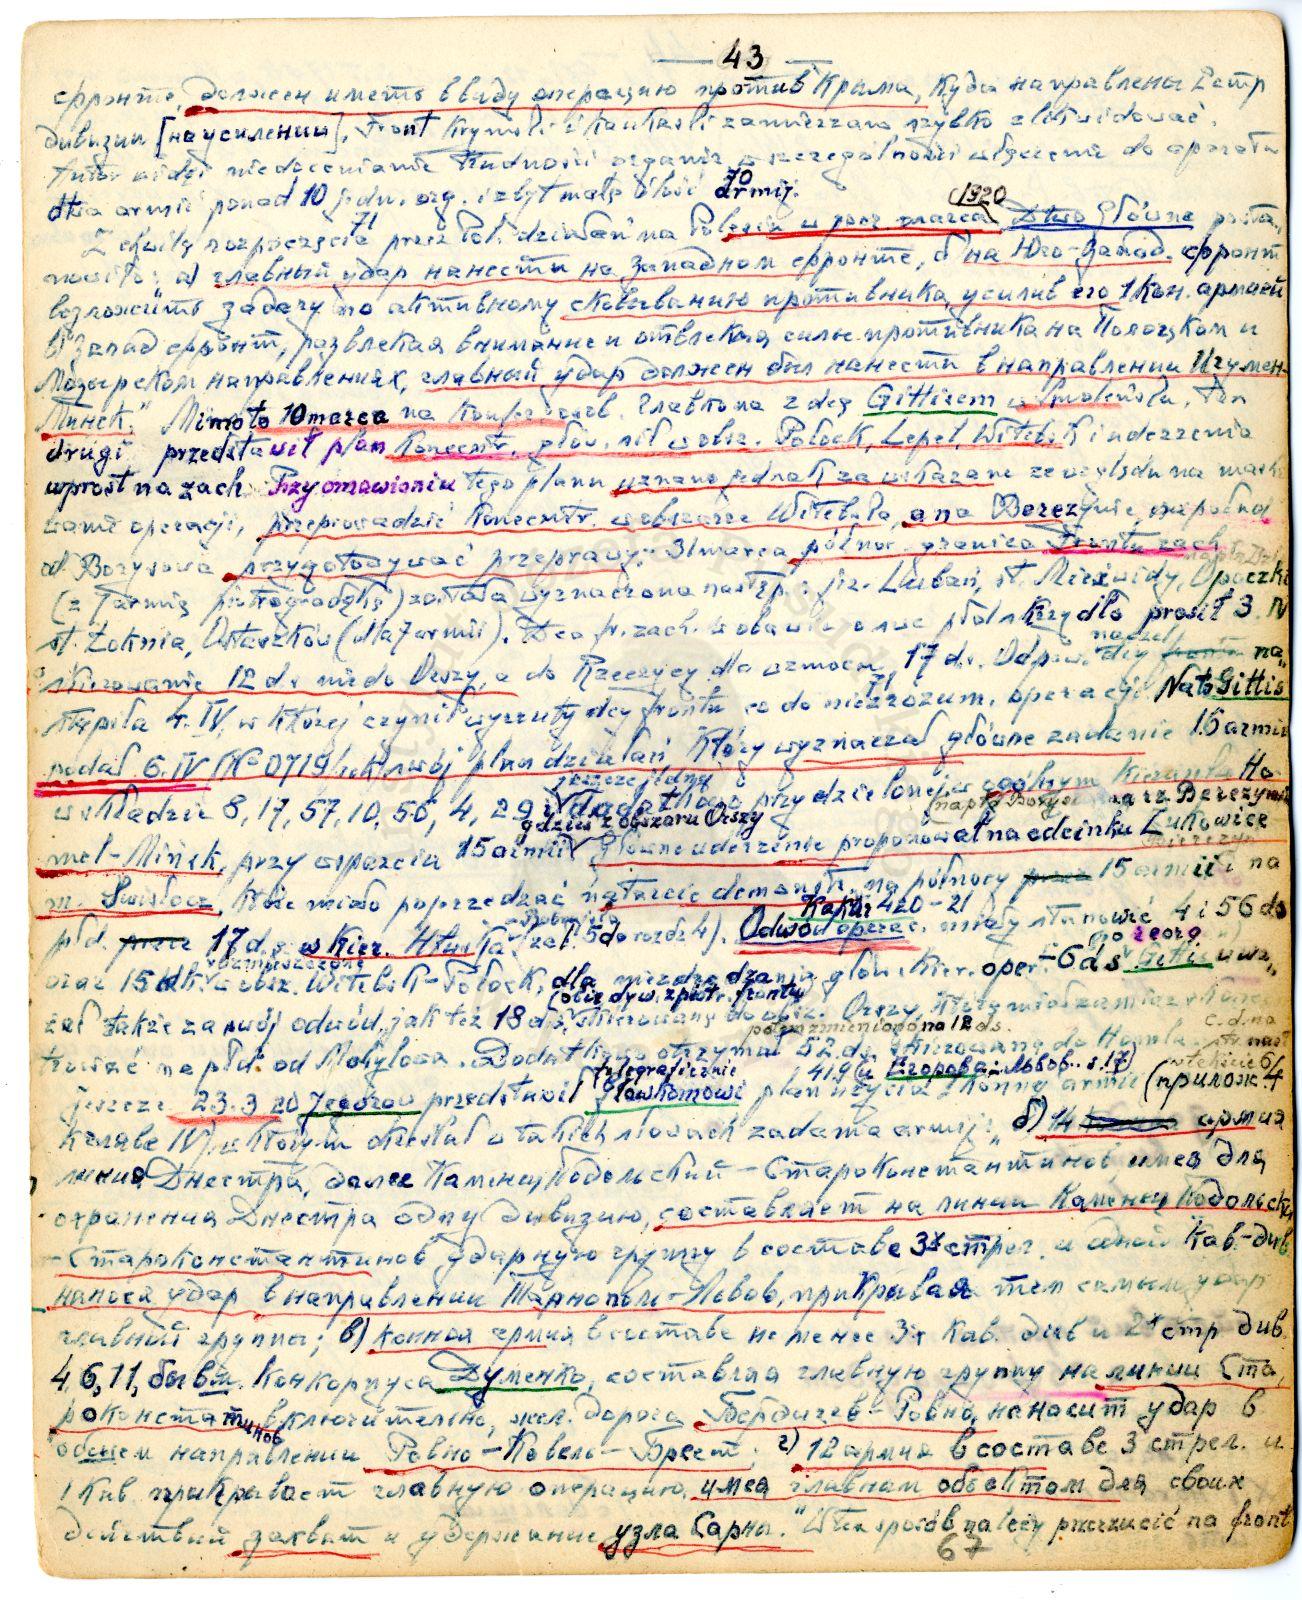 — 43 —
фронте, должен иметь ввиду операцию против Крыма, куда направлены 2 стр
дивизии [на усиления]. Front Krymski i kaukaski zamierzano szybko zlikwidować.
Autor widzi niedocenianie trudności organiz. w szczególności włączenie do aparatu
dtwa armii ponad 10 jedn. org. i zbyt małą ilość armij. 70
Z chwilą rozpoczęcia 71 przez Pol. działań na Polesiu w pocz. marca 1920 Dtwo Główne posta
nowiło: a) главный удар нанести на западном фронте, б на Юго-Запад. фронт
возложить задачу по активному сковыванию противника, усилив его 1 Кон. армией
в Запад фронт, развлекая внимание и отвлекая силы противника на Полоцком и
Мозырском направлениях, главный удар должен был нанести в направлении Игумен-
Минск." Mimoto 10 marca na konfer. Glavkoma z dcą Gittisem w Smoleńsku. Ten
drugi przedstawił plan koncentr. głów. sił w obsz. Połock, Lepel, Witebsk i uderzenia
wprost na zach. Przy omawianiu tego planu uznano jednak za wskazane ze względu na mask
wanie operacji, przeprowadzić koncentr. w obszarze Witebska, a na Berezynie, napołud
od Borysowa przygotowywać przeprawy." 31 marca północ. granica Frontu zach
(z 7 armią piotrogrodzką) została wyznaczona następ.: jez. Lubań, st. Opoczki
st. Łoknia, Ostaszków (dla 7 armii). Dca fr. zach. w obawie o swe płdn. skrzydło prosił 3. IV
skierowanie 12 d.s nie do Orszy, a do Rzeczycy dla wzmocn. 17 d.s. Odpow. naczel dcy na„
stąpiła 4. IV, w której czynił wyrzuty dcy frontu co do niezrozum. operacji. 71 Na to Gittis
podał 6. IV (No 0719) swój plan działań, który wyznaczał główne zadanie 16 armii
w składzie 8, 17, 57, 10, 56, 4, 29 i jeszcze jednej dodatkowo przydzielonej w ogólnym kierunku Ho
mel-Mińsk, przy wsparciu 15 armii gdzieś z obszaru Orszy. Główne uderzenie proponował na odcinku Żukowiec
m. Swisłocz, które miało poprzedzać natarcie demonstr. na północy 15 armii i na
płd. 17 d.s. w kier. Hłuska. Kakur. 420-21 Odwód operac. miały stanowić 4 i 56 ds
oraz 15 dk. rozmieszczone w obsz. Witebsk-Połock, dla niezdradzania głów. kier. oper. - 6 ds Gittis uwa„
żał także za swój odwód, jak też 18 ds, skierowaną do obsz. Orszy, którą miał zamiar
na płd. od Mohylowa. Dodatkowo otrzymał 52 ds. skierowaną do Homla. potem zmieniono na 12 ds.
Jeszcze 23.3 20 Jegorow przedstawił telegraficznie Gławkomowi plan użycia 1 konnej armii (прилож 4
к главе IV), w którym określał w takich słowach zadania armij: „б) 14 армия
линия Днестра, далее Каменец Подольский - Староконстантинов имея для
охранения Днестра одну дивизию, составляет на линии Каменец Подольски
- Староконстантинов ударную группу в составе 3х стрел. и одной Кав-див
нанося удар в направлении Тарнополь-Львов, прикрывая тем самым удар
главной группы; в) конная армия в составе не менее 3х кав. див и 2х стр див.
4, 6, 11, бывш. Конкорпуса Думенко, составляя главную группу на линии Ста„
роконстантинов включительно, жел. дорога Бердичев-Ровно, наносит удар в
общем направлении Ровно-Ковель-Брест. г) 12 армия в составе 3 стрел. и
1 Кав. прикрывает главную операцию, имея главном объектом для своих
действий захват и удержание узла Сарны." W ten sposób należy przerzucić na front
67